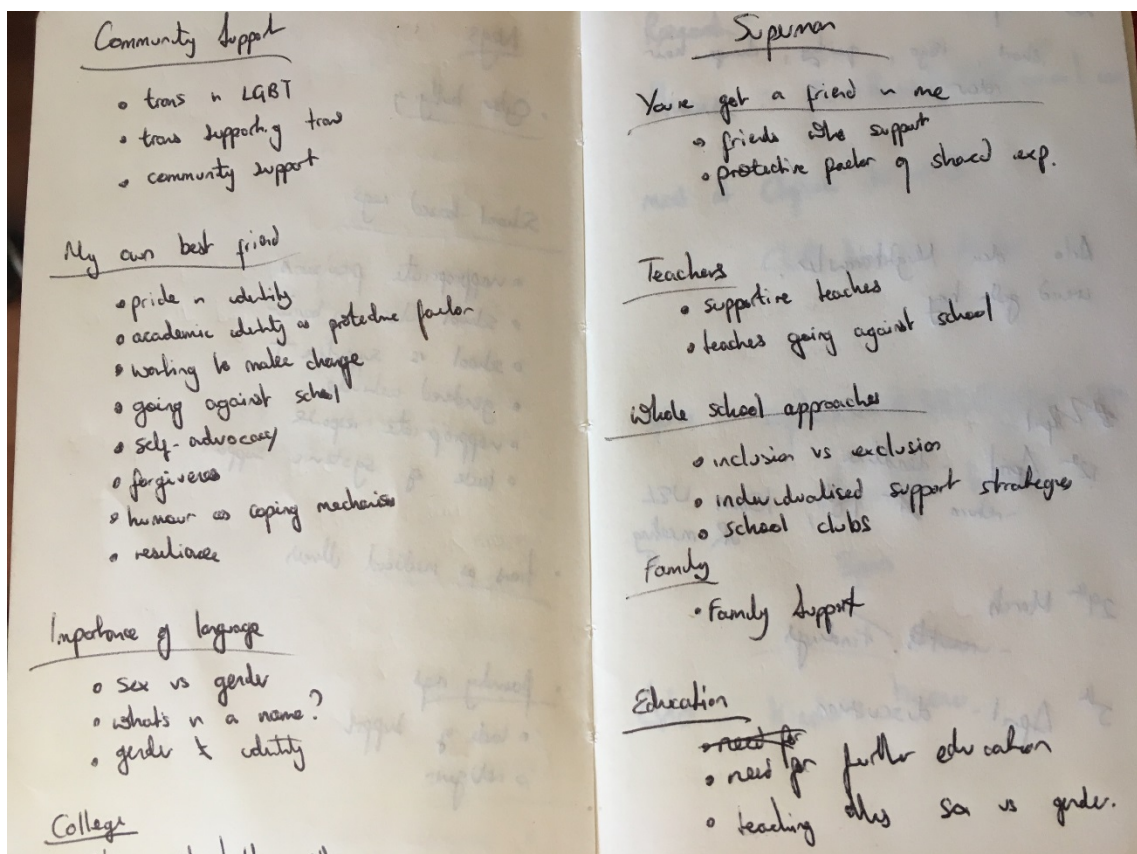 Community Support
• trans in LGBT
• trans supporting trans
• community support
My own best friend
• pride in identity
• academic identity as protective factor
• working to make change
• going against school
• self-advocacy
• forgiveness
• humour as coping mechanism
• resilience
Importance of language
• sex vs gender
• what's in a name?
• gender & identity
College
Superman
You've got a friend in me
• friends who support
• protective factor of shared exp.
Teachers
• supportive teachers
• teachers going against school
Whole school approaches
• inclusion vs exclusion
• individualised support strategies
• school clubs
Family
• Family Support
Education
• need for
• need for further education
• teaching sex vs gender.